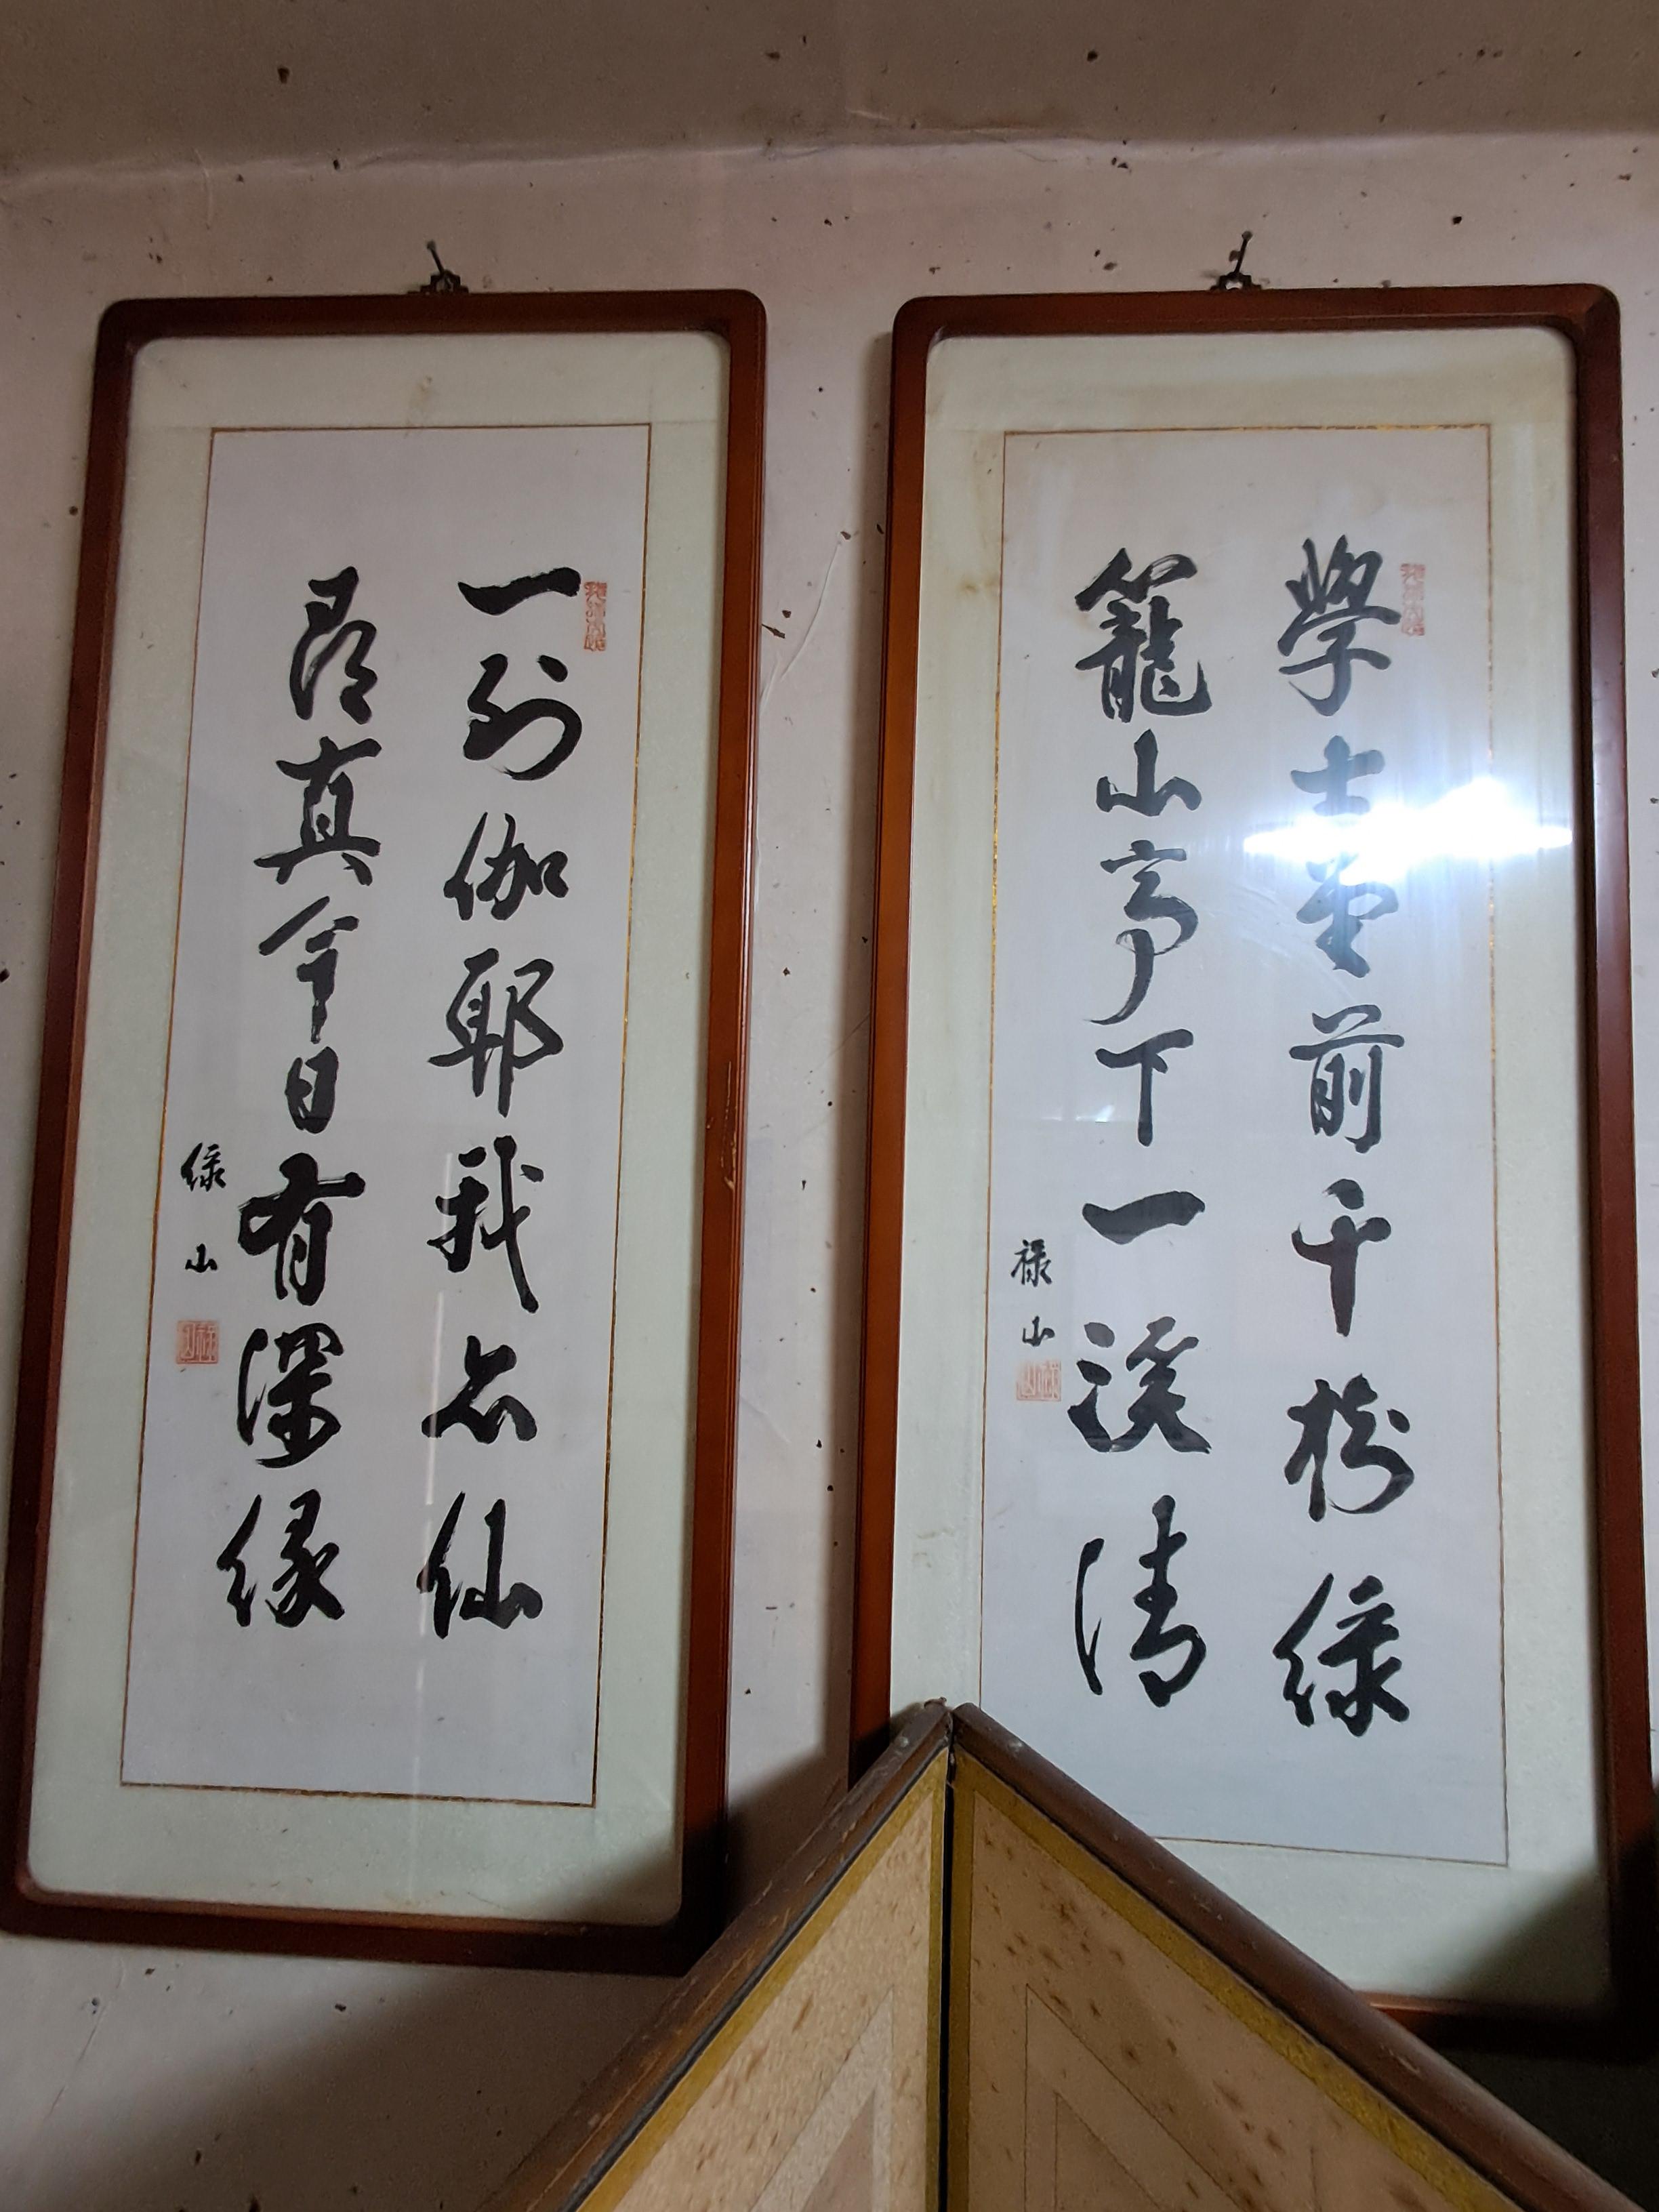 學士前千樹綠
籠山亭下一溪清
祿山
一到伽耶我亦仙
尋真今日有深緣
綠山